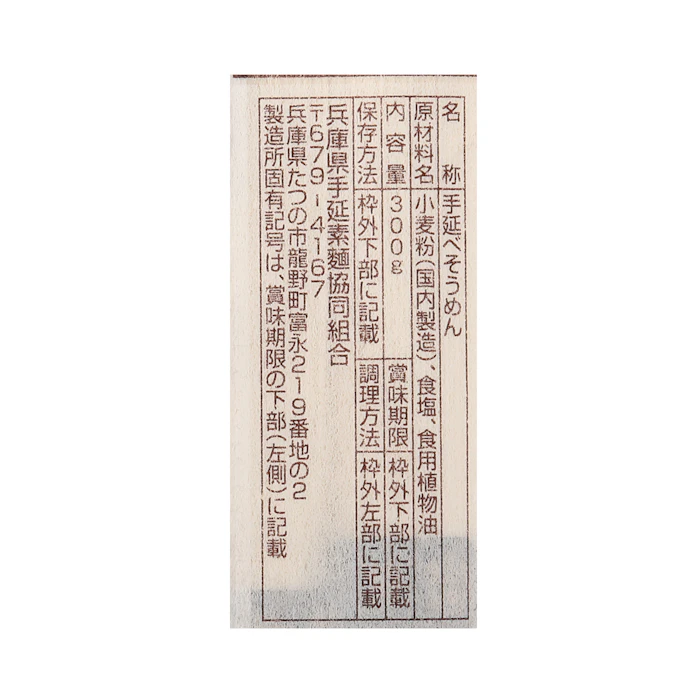 名称 手延べそうめん
原材料名 小麦粉(国内製造)、食塩、食用植物油
内容量 300g 賞味期限 枠外下部に記載
保存方法 枠外下部に記載 調理方法 枠外左部に記載
兵庫県手延素麺協同組合
〒679-4167
兵庫県たつの市龍野町富永219番地の2
製造所固有記号は、賞味期限の下部(左側)に記載